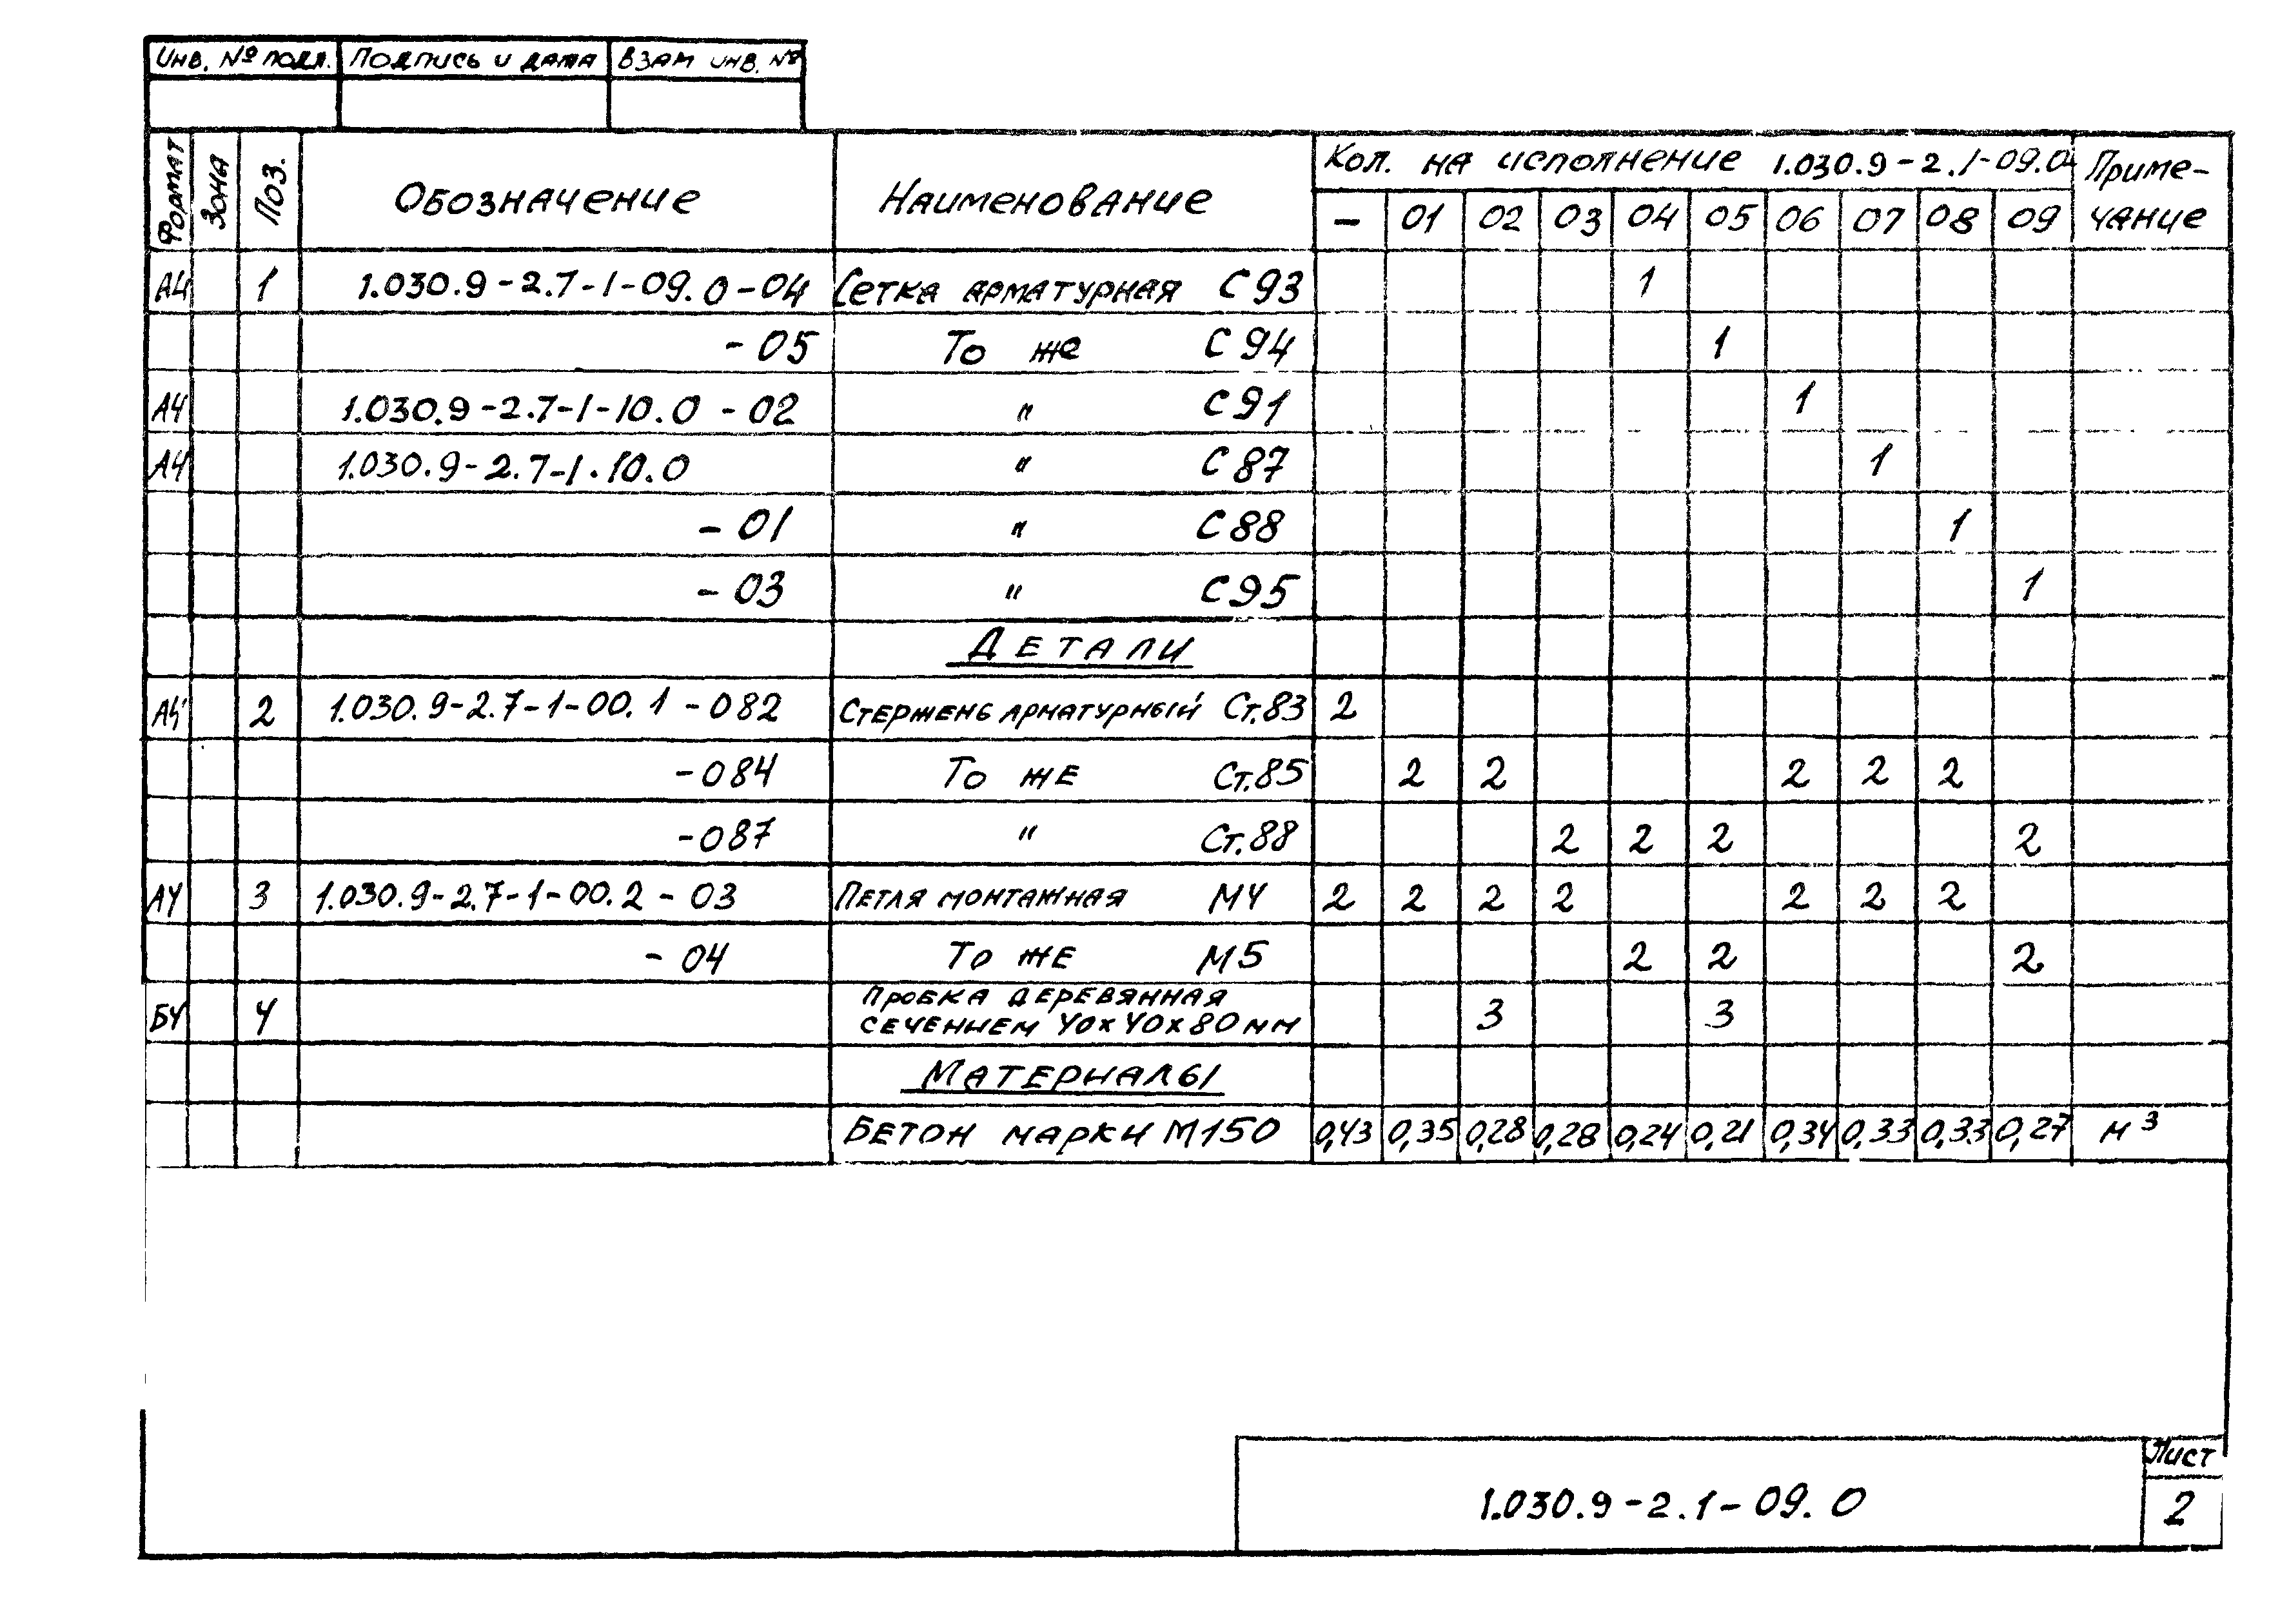 Инв. № подл. Подпись и дата Взам инв. №
Формат Зона Поз. Обозначение Наименование Кол. на исполнение 1.030.9-2.1-09.0 Приме-
- 01 02 03 04 05 06 07 08 09 чание
А4 1 1.030.9-2.7-1-09.0-04 Сетка арматурная С93 1
-05 То же С94 1
А4 1.030.9-2.7-1-10.0-02 " С91 1
А4 1.030.9-2.7-1.10.0 " С87 1
-01 " С88 1
-03 " С95 1
Детали
А4 2 1.030.9-2.7-1-00.1-082 Стержень арматурный Ст.83 2
-084 То же Ст.85 2 2 2 2 2
-087 " Ст.88 2 2 2 2
А4 3 1.030.9-2.7-1-00.2-03 Петля монтажная М4 2 2 2 2 2 2 2
-04 То же М5 2 2 2
БЧ 4 Пробка деревянная
сечением 40х40х80мм 3 3
Материалы
Бетон марки М150 0,43 0,35 0,28 0,28 0,24 0,21 0,34 0,33 0,33 0,27 м³
1.030.9-2.1-09.0
Лист
2